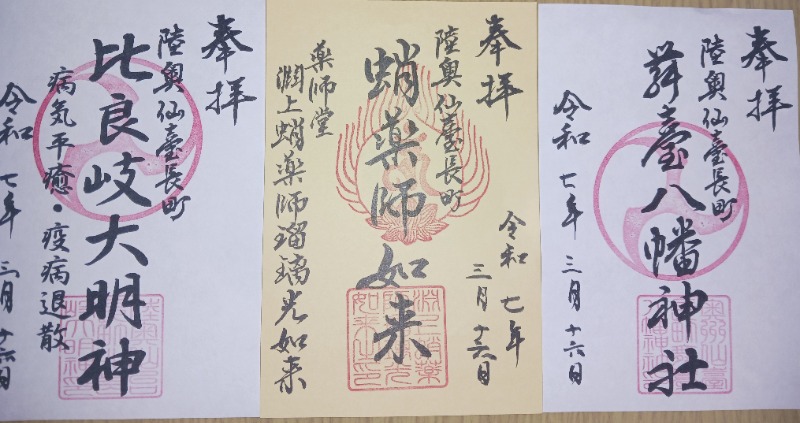 奉拝
陸奥仙臺長町
舞臺八幡神社
令和七年三月十六日
奉拝
陸奥仙臺長町
令和七年
三月十六日
蛸薬師如来
薬師堂
渕上蛸薬師瑠璃光如来
奉拝
陸奥仙臺長町
比良岐大明神
病気平癒・疫病退散
令和七年三月十六日